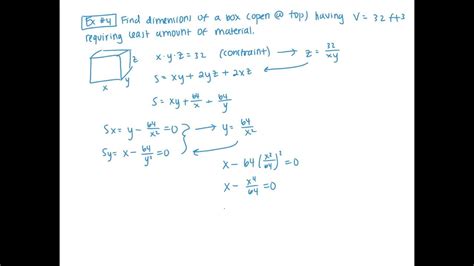 Ex #4 Find dimensions of a box (open @ top) having V = 32 ft3
requiring least amount of material.
x·y·z = 32 (constraint) → z = 32/xy
z
y
x
S = xy + 2yz + 2xz
S = xy + 64/x + 64/y
Sx = y - 64/x² = 0 → y = 64/x²
Sy = x - 64/y² = 0
x - 64(x²/64)² = 0
x - x⁴/64 = 0